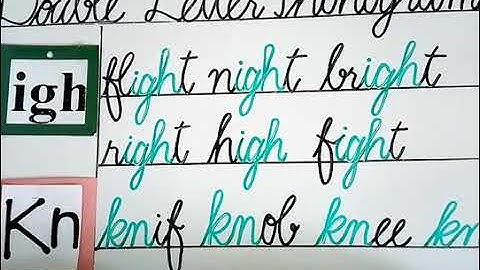 Double Letter Phonogram
igh
flight night bright
right high fight
Kn
knif knob knee kn